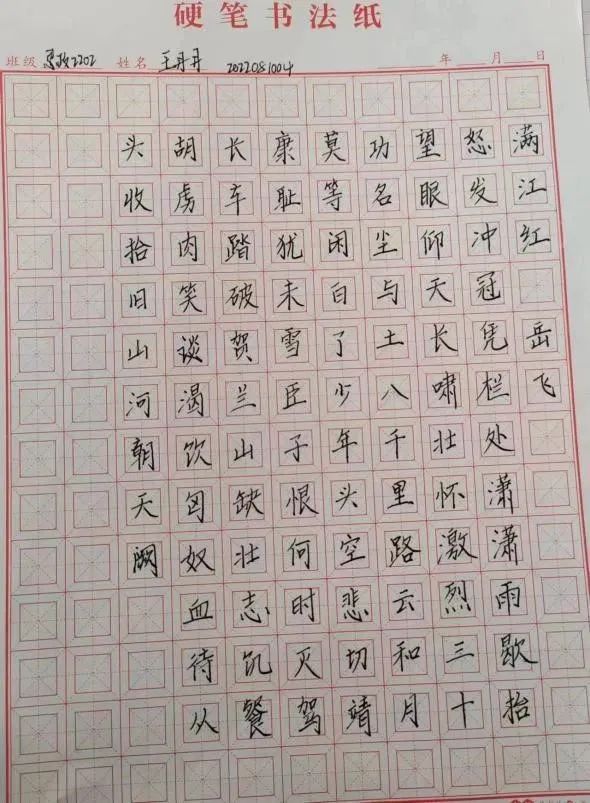 硬笔书法纸
班级 思政2202 姓名 王丹丹 2022081004 年 月 日
满江红 岳飞
怒发冲冠凭栏处潇潇雨歇抬
望眼仰天长啸壮怀激烈三十
功名尘与土八千里路云和月
莫等闲白了少年头空悲切靖
康耻犹未雪臣子恨何时灭驾
长车踏破贺兰山缺壮志饥餐
胡虏肉笑谈渴饮匈奴血待从
头收拾旧山河朝天阙